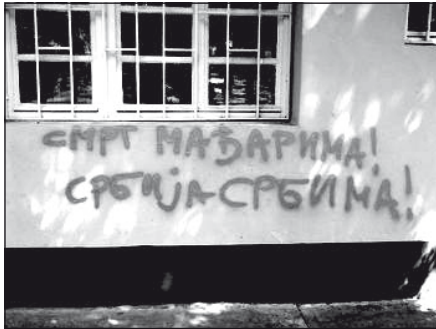 СМРТ МАЂАРИМА!
СРБИЈА СРБИМА!